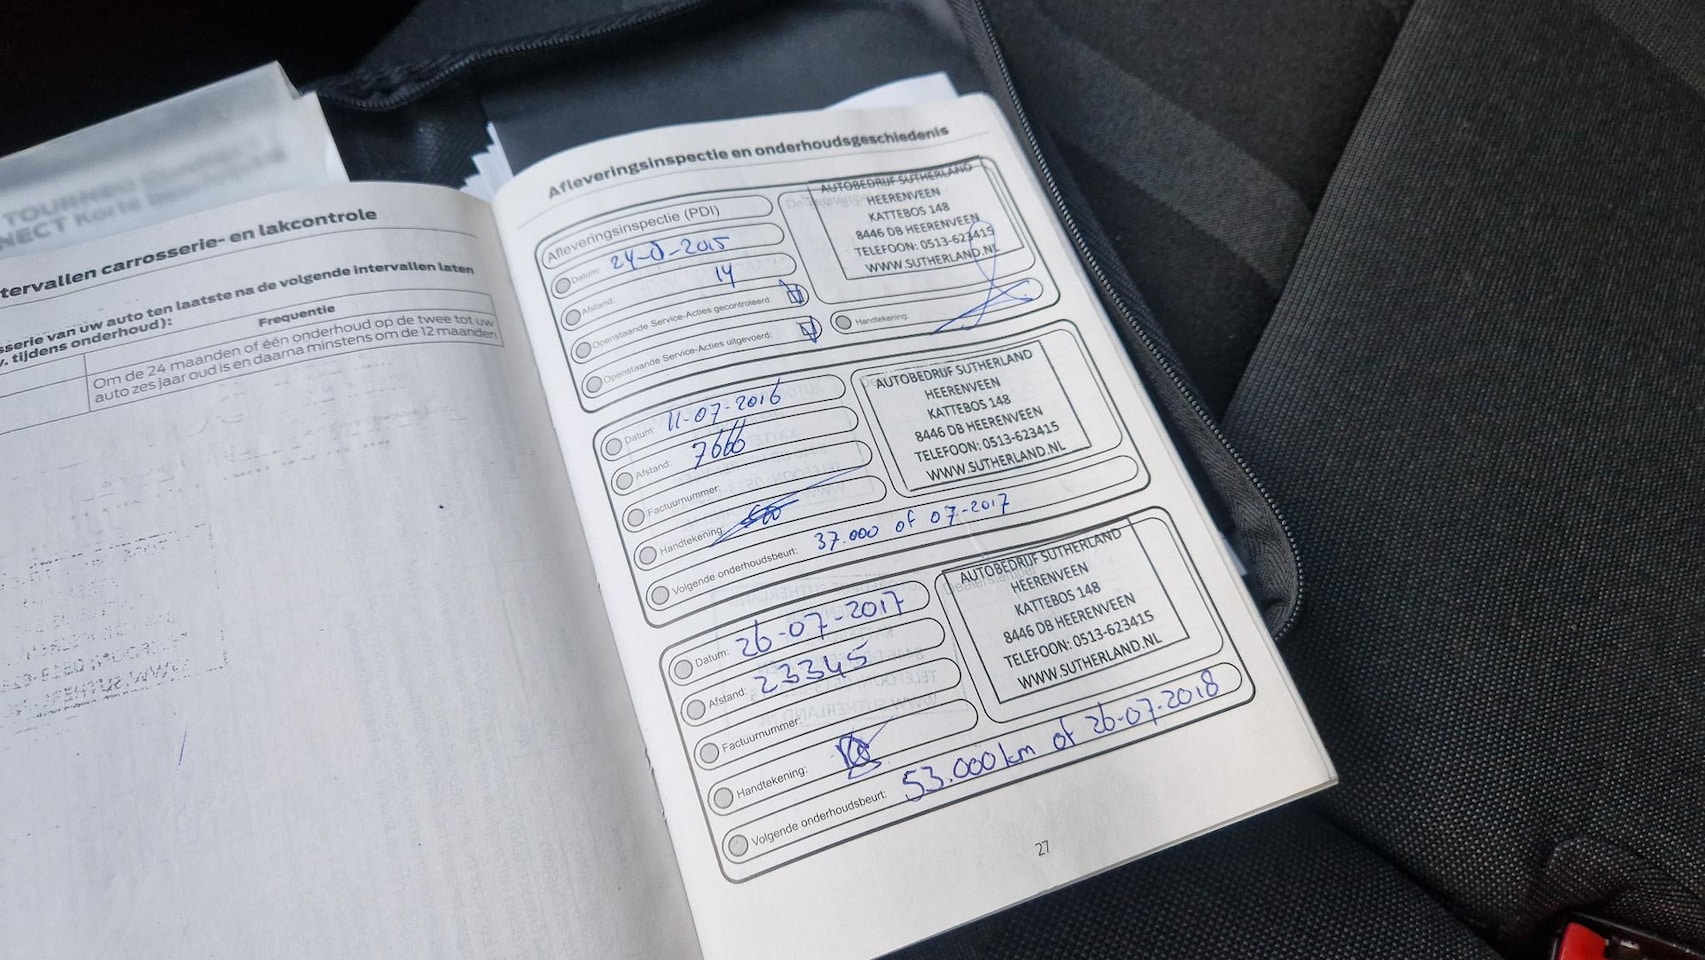 TOURNEO
NNECT Korte
tervallen carrosserie- en lakcontrole
sserie van uw auto ten laatste na de volgende intervallen laten
v. tijdens onderhoud):
Frequentie
Om de 24 maanden of één onderhoud op de twee tot uw
auto zes jaar oud is en daarna minstens om de 12 maanden
Afleveringsinspectie en onderhoudsgeschiedenis
Afleveringsinspectie (PDI)
Datum:
Afstand: 14
Openstaande Service-Acties gecontroleerd:
Openstaande Service-Acties uitgevoerd:
AUTOBEDRIJF SUTHERLAND
HEERENVEEN
KATTEBOS 148
8446 DB HEERENVEEN
TELEFOON: 0513-623415
WWW.SUTHERLAND.NL
Handtekening:
Datum: 11-07-2016
Afstand: 7666
Factuurnummer:
Handtekening:
Volgende onderhoudsbeurt: 37.000 of 07-2017
AUTOBEDRIJF SUTHERLAND
HEERENVEEN
KATTEBOS 148
8446 DB HEERENVEEN
TELEFOON: 0513-623415
WWW.SUTHERLAND.NL
Datum: 26-07-2017
Afstand: 23345
Factuurnummer:
Handtekening:
Volgende onderhoudsbeurt: 53.000 km of 26-07-2018
AUTOBEDRIJF SUTHERLAND
HEERENVEEN
KATTEBOS 148
8446 DB HEERENVEEN
TELEFOON: 0513-623415
WWW.SUTHERLAND.NL
27